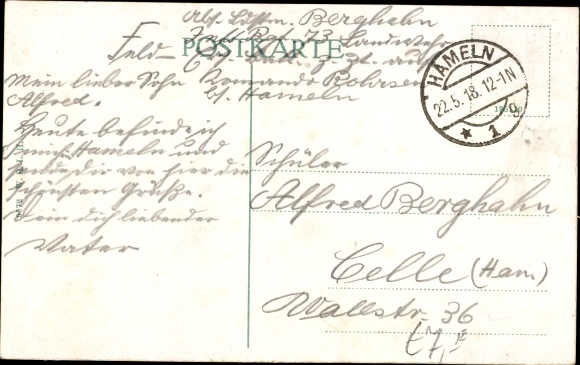 Abs. Ldstm. Berghahn
Inf Rgt 73 Landwehr
Feld-
POSTKARTE
Komando Rohrsen
b/ Hameln
Mein lieber Sohn
Alfred.
Heute befinde ich
mich Hameln und
sende dir von hier die
schönsten Grüße.
Dein dich liebender
Vater
HAMELN
22.5.18.12-1N
* 1 g
Schüler
Alfred Berghahn
Celle (Han)
Wallstr. 36